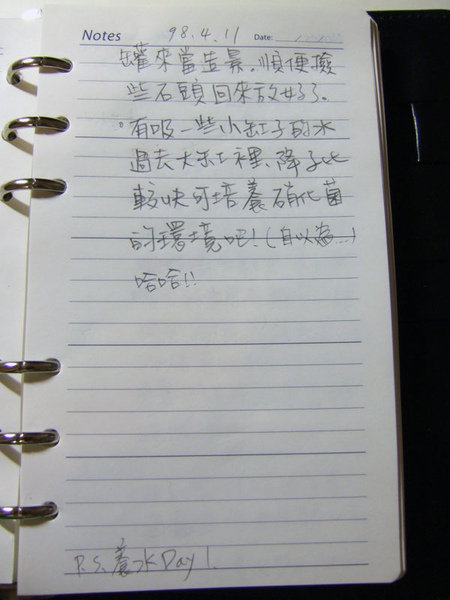 Notes 98.4.11 Date:
罐來當造景。順便撿
些石頭回來放好了。
·有吸一些小缸子的水
過去大缸裡、這樣子比
較快可培養硝化菌
的環境吧!(自以為...)
哈哈!!
P.S. 養水Day 1.